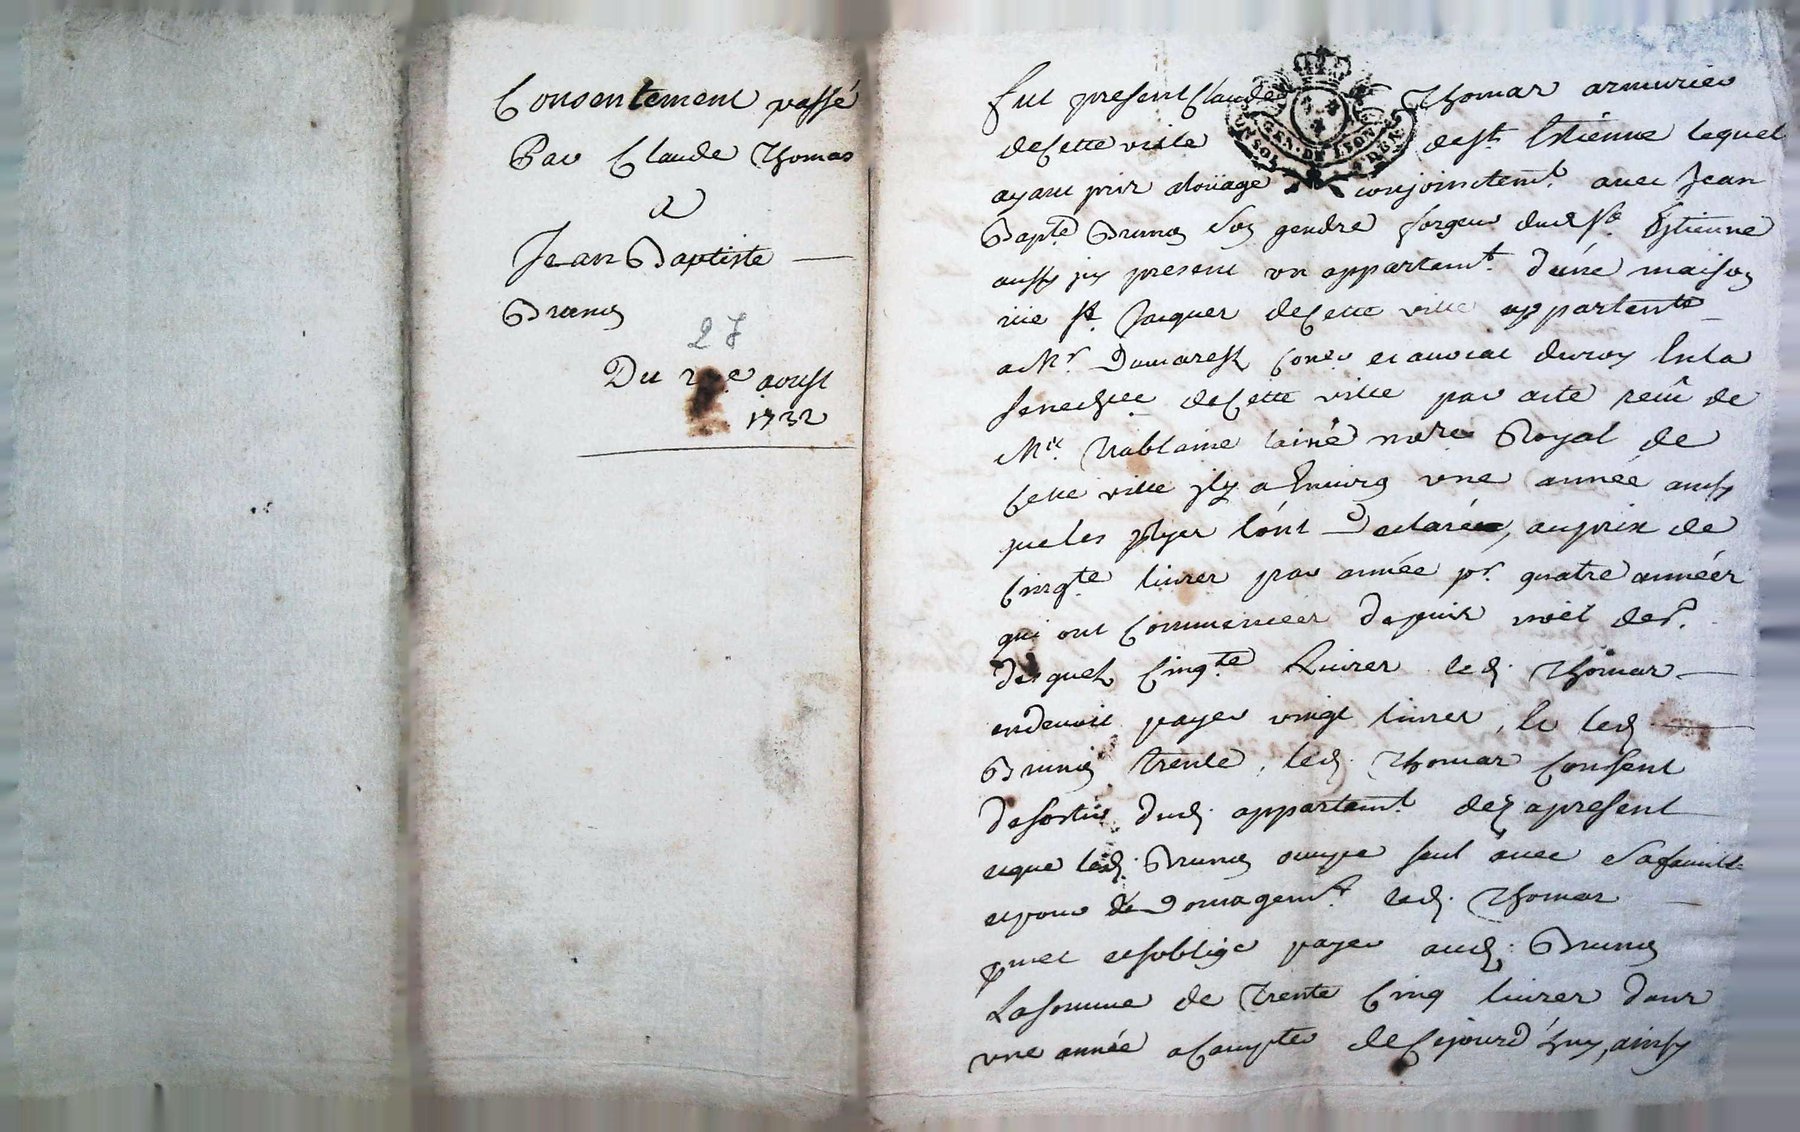 Consentement passé
Par Claude Thomas
a
Jean Baptiste
Brunos
27
Du aoust
1732
GEN. DE LEON
fut present Claude Thomas armurier
de Cette ville de St Estienne lequel
ayant pris a loüage conjoinctemt avec Jean
Bapte son gendre forgeur dud St Estienne
aussy icy present un appartemt d'une maison
rue St Jacques de Cette ville appartente
a Mr et avocat du roy En la
senechée de Cette ville par acte receu de
Me l'ainé nore Royal de
Cette ville il y a Environ une année ainsy
que les l'ont Declaré, au prix de
Cinqte livres par année pr quatre années
qui ont Commencées depuis noël der.
desquels Cinqte Livres led. Thomas
en devoit payer vingt livres, Et led.
trente, led. Thomas Consent
de sortir dud. appartemt dez a present
et que led. occupe seul avec sa famille
et pour de Domagemt led. Thomas
promet et s'oblige payer aud.
La somme de trente Cinq livres dans
une année a Compter de Cejourd'huy, ainsy